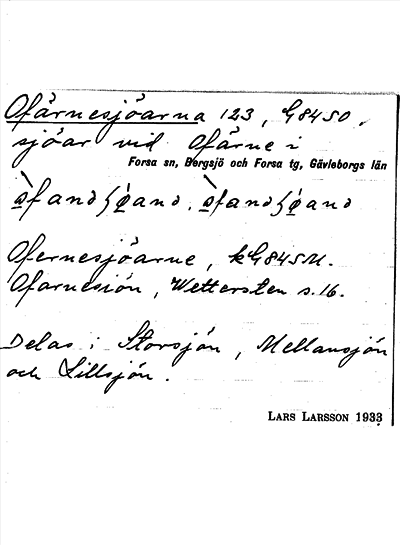 Ofärnesjöarna 123, G84SO,
sjöar vid Ofärne i
Forsa sn, Bergsjö och Forsa tg, Gävleborgs län
Ofernesjöarne, kG84SM.
Ofarnesiön, Wettersten s.16.
Delas i Storsjön, Mellansjön
och Lillsjön.
LARS LARSSON 1933